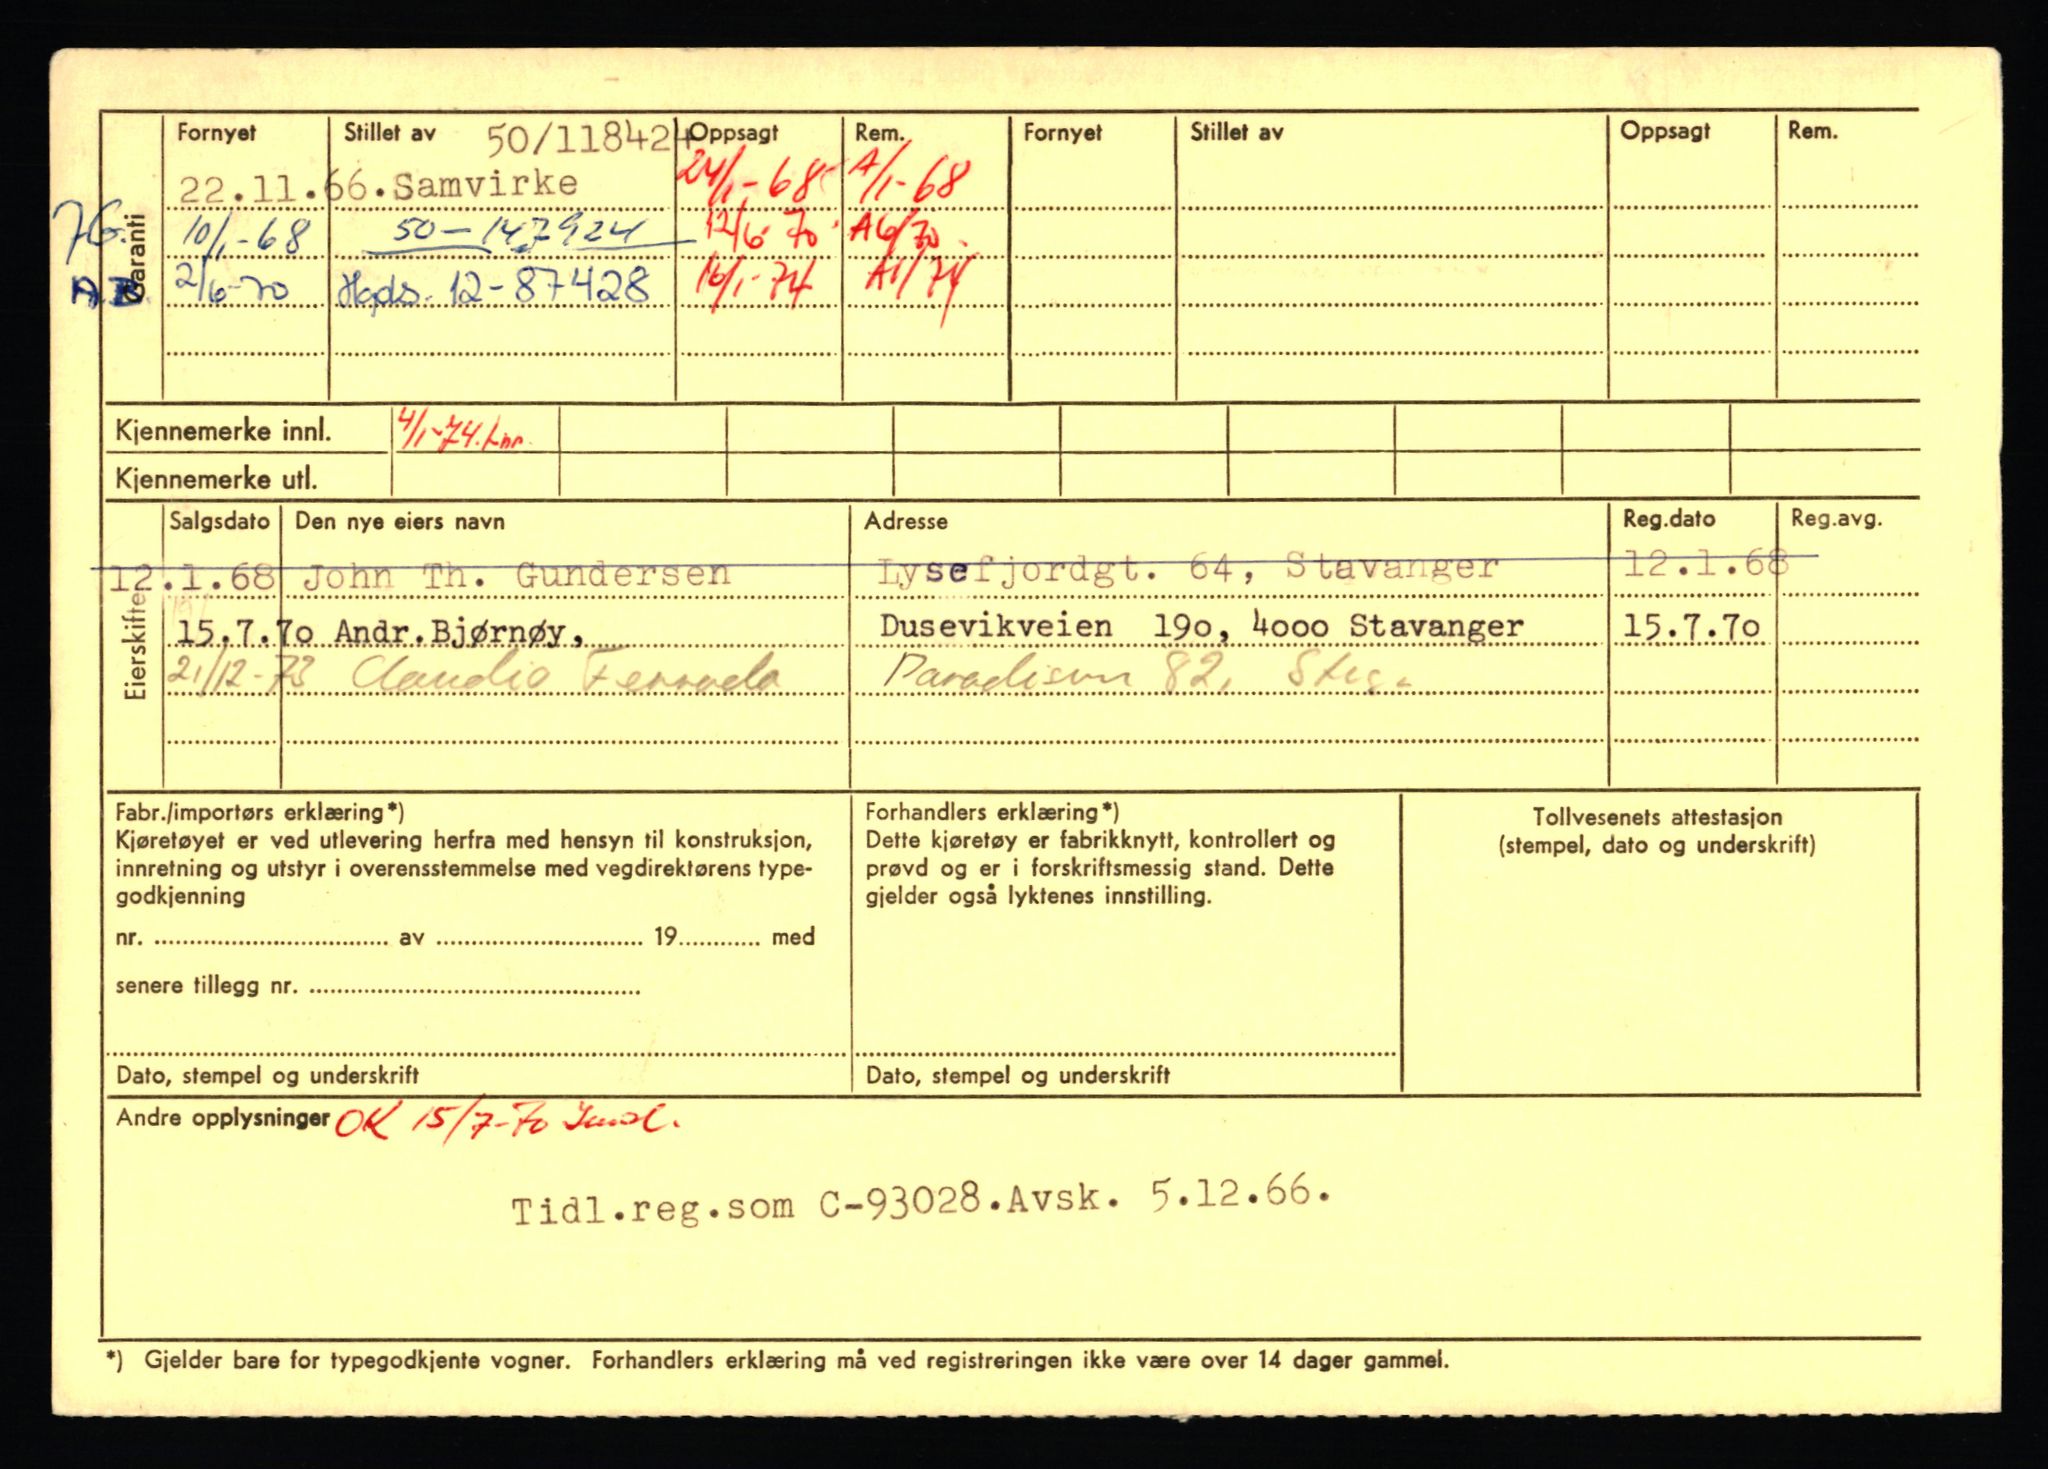 Fornyet Stillet av 50/118424 Oppsagt Rem. Fornyet Stillet av Oppsagt Rem.
22.11.66. Samvirke 24/1-68 A/1-68
Garanti
10/1-68 50-147924 12/6-70 A6/70
2/6-70 12-87428 16/1-74 A1/74
Kjennemerke innl. 4/1-74.
Kjennemerke utl.
Eierskifter
Salgsdato Den nye eiers navn Adresse Reg.dato Reg.avg.
12.1.68 John Th. Gundersen Lysefjordgt. 64, Stavanger 12.1.68
15.7.70 Andr.Bjørnøy, Dusevikveien 190, 4000 Stavanger 15.7.70
21/12-73 Claudio 82,
Fabr./importørs erklæring*)
Kjøretøyet er ved utlevering herfra med hensyn til konstruksjon,
innretning og utstyr i overensstemmelse med vegdirektørens type-
godkjenning
nr. av 19 med
senere tillegg nr.
Dato, stempel og underskrift
Forhandlers erklæring*)
Dette kjøretøy er fabrikknytt, kontrollert og
prøvd og er i forskriftsmessig stand. Dette
gjelder også lyktenes innstilling.
Dato, stempel og underskrift
Tollvesenets attestasjon
(stempel, dato og underskrift)
Andre opplysninger OK 15/7-70
Tidl.reg.som C-93028.Avsk. 5.12.66.
*) Gjelder bare for typegodkjente vogner. Forhandlers erklæring må ved registreringen ikke være over 14 dager gammel.